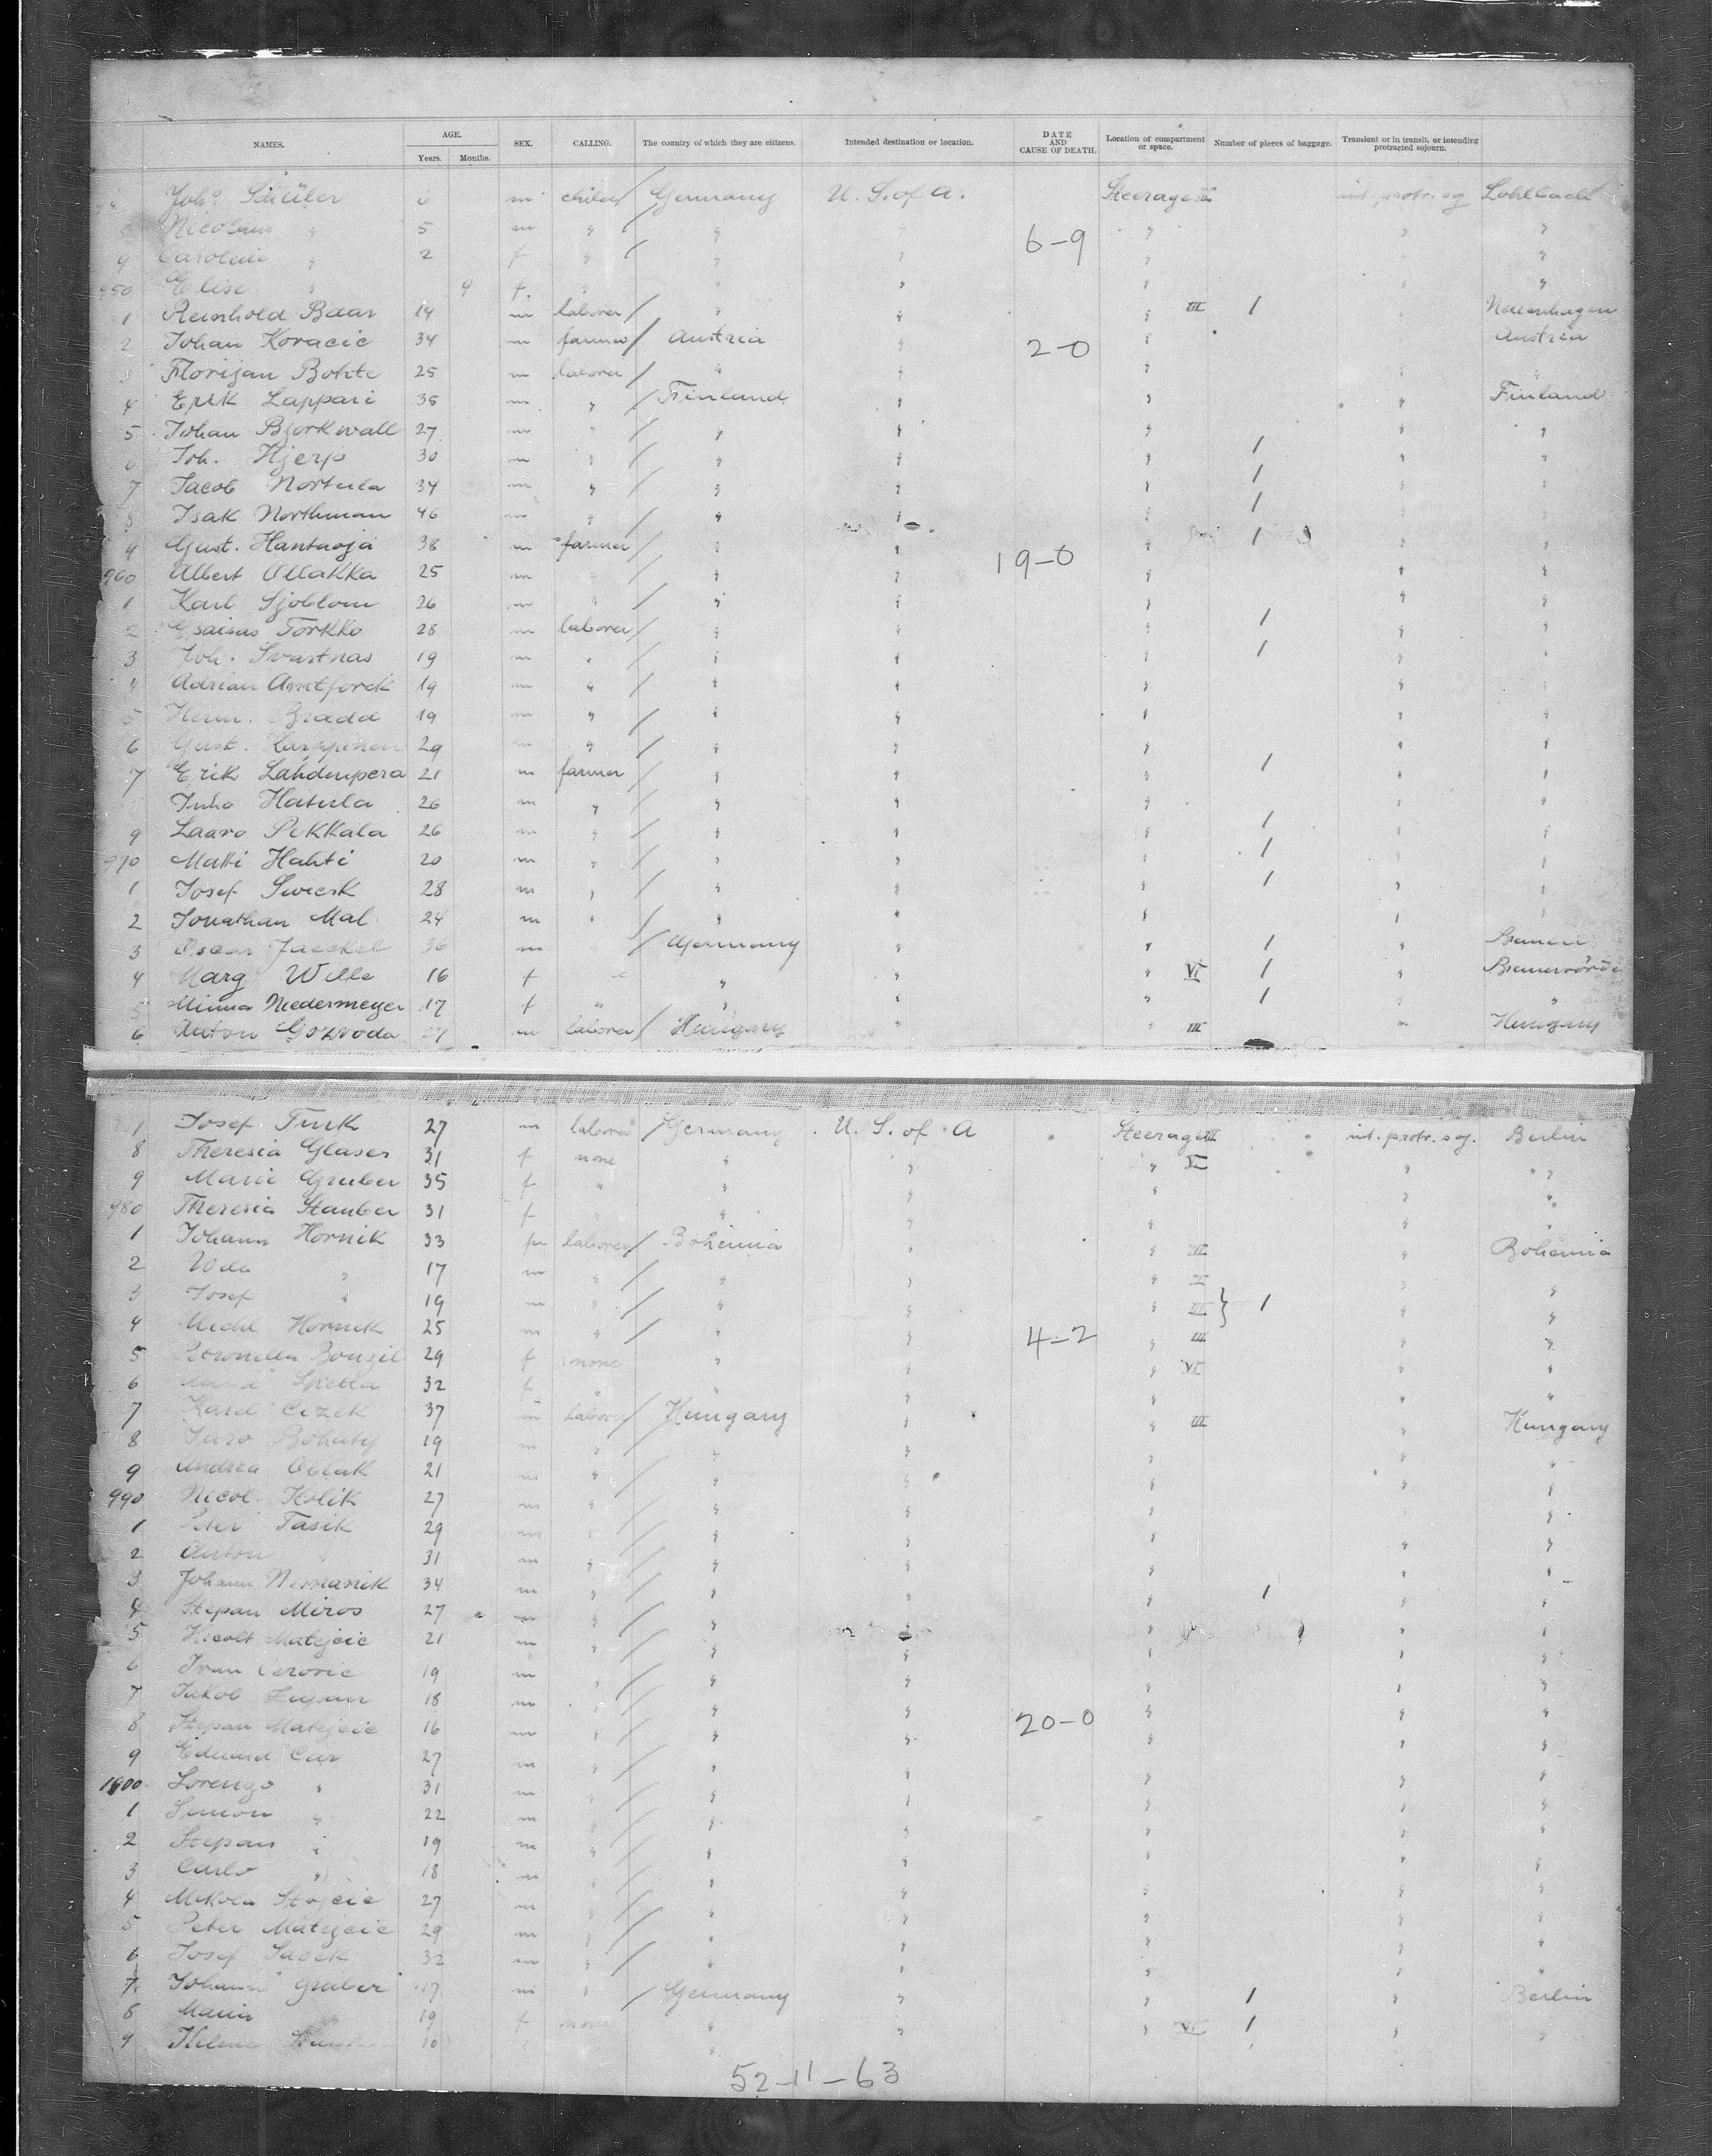 NAMES. AGE. Years. Months. SEX. CALLING. The country of which they are citizens. Intended destination or location. DATE AND CAUSE OF DEATH. Location of compartment or space. Number of pieces of baggage. Transient or in transit, or intending protracted sojourn.
Joh. Schüler m child / Germany U. S. of A. Steerage III int. protr. soj Lohlbach
Nicolaus " 5 m " / " " 6-9 " " "
9 Caroline " 2 f " / " " " " "
950 Elise " 9 f. " " " " "
1 Reinhold Baar 14 m laborer / " " " III 1 " Neuenhagen
2 Johan Kovacic 34 m farmer / Austria " 2-0 " Austria
3 Florijan Bohte 25 m laborer / " " " " "
4 Erik Lappari 35 m " / Finland " " " Finland
5 Johan Bjorkwall 27 m " / " " " " "
6 Joh. Hjerp 30 m " / " " " 1 " "
7 Jacob Nortula 34 m " / " " " 1 " "
8 Isak Northman 46 m " / " " " 1 " "
9 Gust. Hantaoja 38 m farmer / " " " 1 " "
960 Albert Ollakka 25 m " / " " 19-0 " " "
1 Karl Sjoblom 26 m " / " " " " "
2 Esaisas Torkko 28 m laborer / " " " 1 " "
3 Joh. Svastnas 19 m " / " " " 1 " "
4 Adrian 19 m " / " " " " "
5 Herm. Bradd 19 m " / " " " " "
6 Gust. Karppinen 29 m " / " " " " "
7 Erik Lahdenpera 21 m farmer / " " " 1 " "
Juho Hatula 26 m " / " " " " "
9 Laaro Pekkala 26 m " / " " " 1 " "
970 Matti Hahti 20 m " / " " " 1 " "
1 Josef Swierk 28 m " / " " " 1 " "
2 Jonathan Mal 24 m " / " " " " "
3 Oscar Jaeckel 36 m / Germany " " 1 " Bremen
4 Marg Wille 16 f " " " VI 1 " Bremervörde
5 Minna Niedermeyer 17 f " " " " 1 " "
6 Anton m laborer / Hungary " " III " Hungary
Josef Turk 27 m laborer / Germany U. S. of A Steerage III int. protr. soj. Berlin
8 Theresia Glaser 31 f none " " " VI " "
9 Marie Gruber 35 f " " " " " "
980 Theresia Stauber 31 f " " " " " "
1 Johann Hornik 33 m laborer / Bohemia " " III " Bohemia
2 17 m " / " " " III " "
3 Josef " 19 m " / " " " III } 1 " "
4 Michl Hornik 25 m " / " " 4-2 " III " "
5 Petronella Bouzil 29 f none " " " VI " "
6 32 f " " " " " "
7 Karel Cizek 37 m laborer / Hungary " " III " Hungary
8 Juro Bohaty 19 m " / " " " " "
9 Andrea Oblak 21 m " / " " " " "
990 Nicol. Kolik 27 m " / " " " " "
1 Peter Tasik 29 m " / " " " " "
2 Anton " 31 m " / " " " " "
3 Johann Nemanik 34 m " / " " " 1 " "
4 Stepan Miros 27 m " / " " " " "
5 Nicolt Matejcic 21 m " / " " " " "
6 Ivan Cerovic 19 m " / " " " " "
7 Jakob Zupan 18 m " / " " " " "
8 Stepan Matejcic 16 m " / " " 20-0 " " "
9 Eduard Car 27 m " / " " " " "
1000 Lorenzo " 31 m " / " " " " "
1 Simon " 22 m " / " " " " "
2 Stepan " 19 m " / " " " " "
3 Carlo " 18 m " / " " " " "
4 Mikola Stojcic 27 m " / " " " " "
5 Peter Matejcic 29 m " / " " " " "
6 Josef Sasek 32 m " / " " " " "
7 Johann Gruber 17 m " / Germany " " 1 " Berlin
8 Marie " 19 f none " " " VI 1 " "
9 Helene 10 "
52-11-63